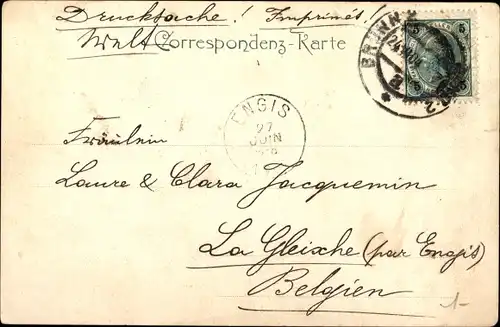 Drucksache! Imprimés!
Welt Correspondenz-Karte
BRÜNN
5 5
ENGIS
27
JUIN
Fräulein
Laure & Clara Jacquemin
La Gleixhe (par Engis)
Belgien
1-